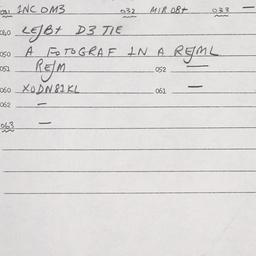 031 INC OM3 032 MIR OB+ 033 —
040 LEJB+ D3 TIE
050 A FOTOGRAF IN A REJML
051 REJM 052 —
060 XODN81KL 061 —
062 —
063 —